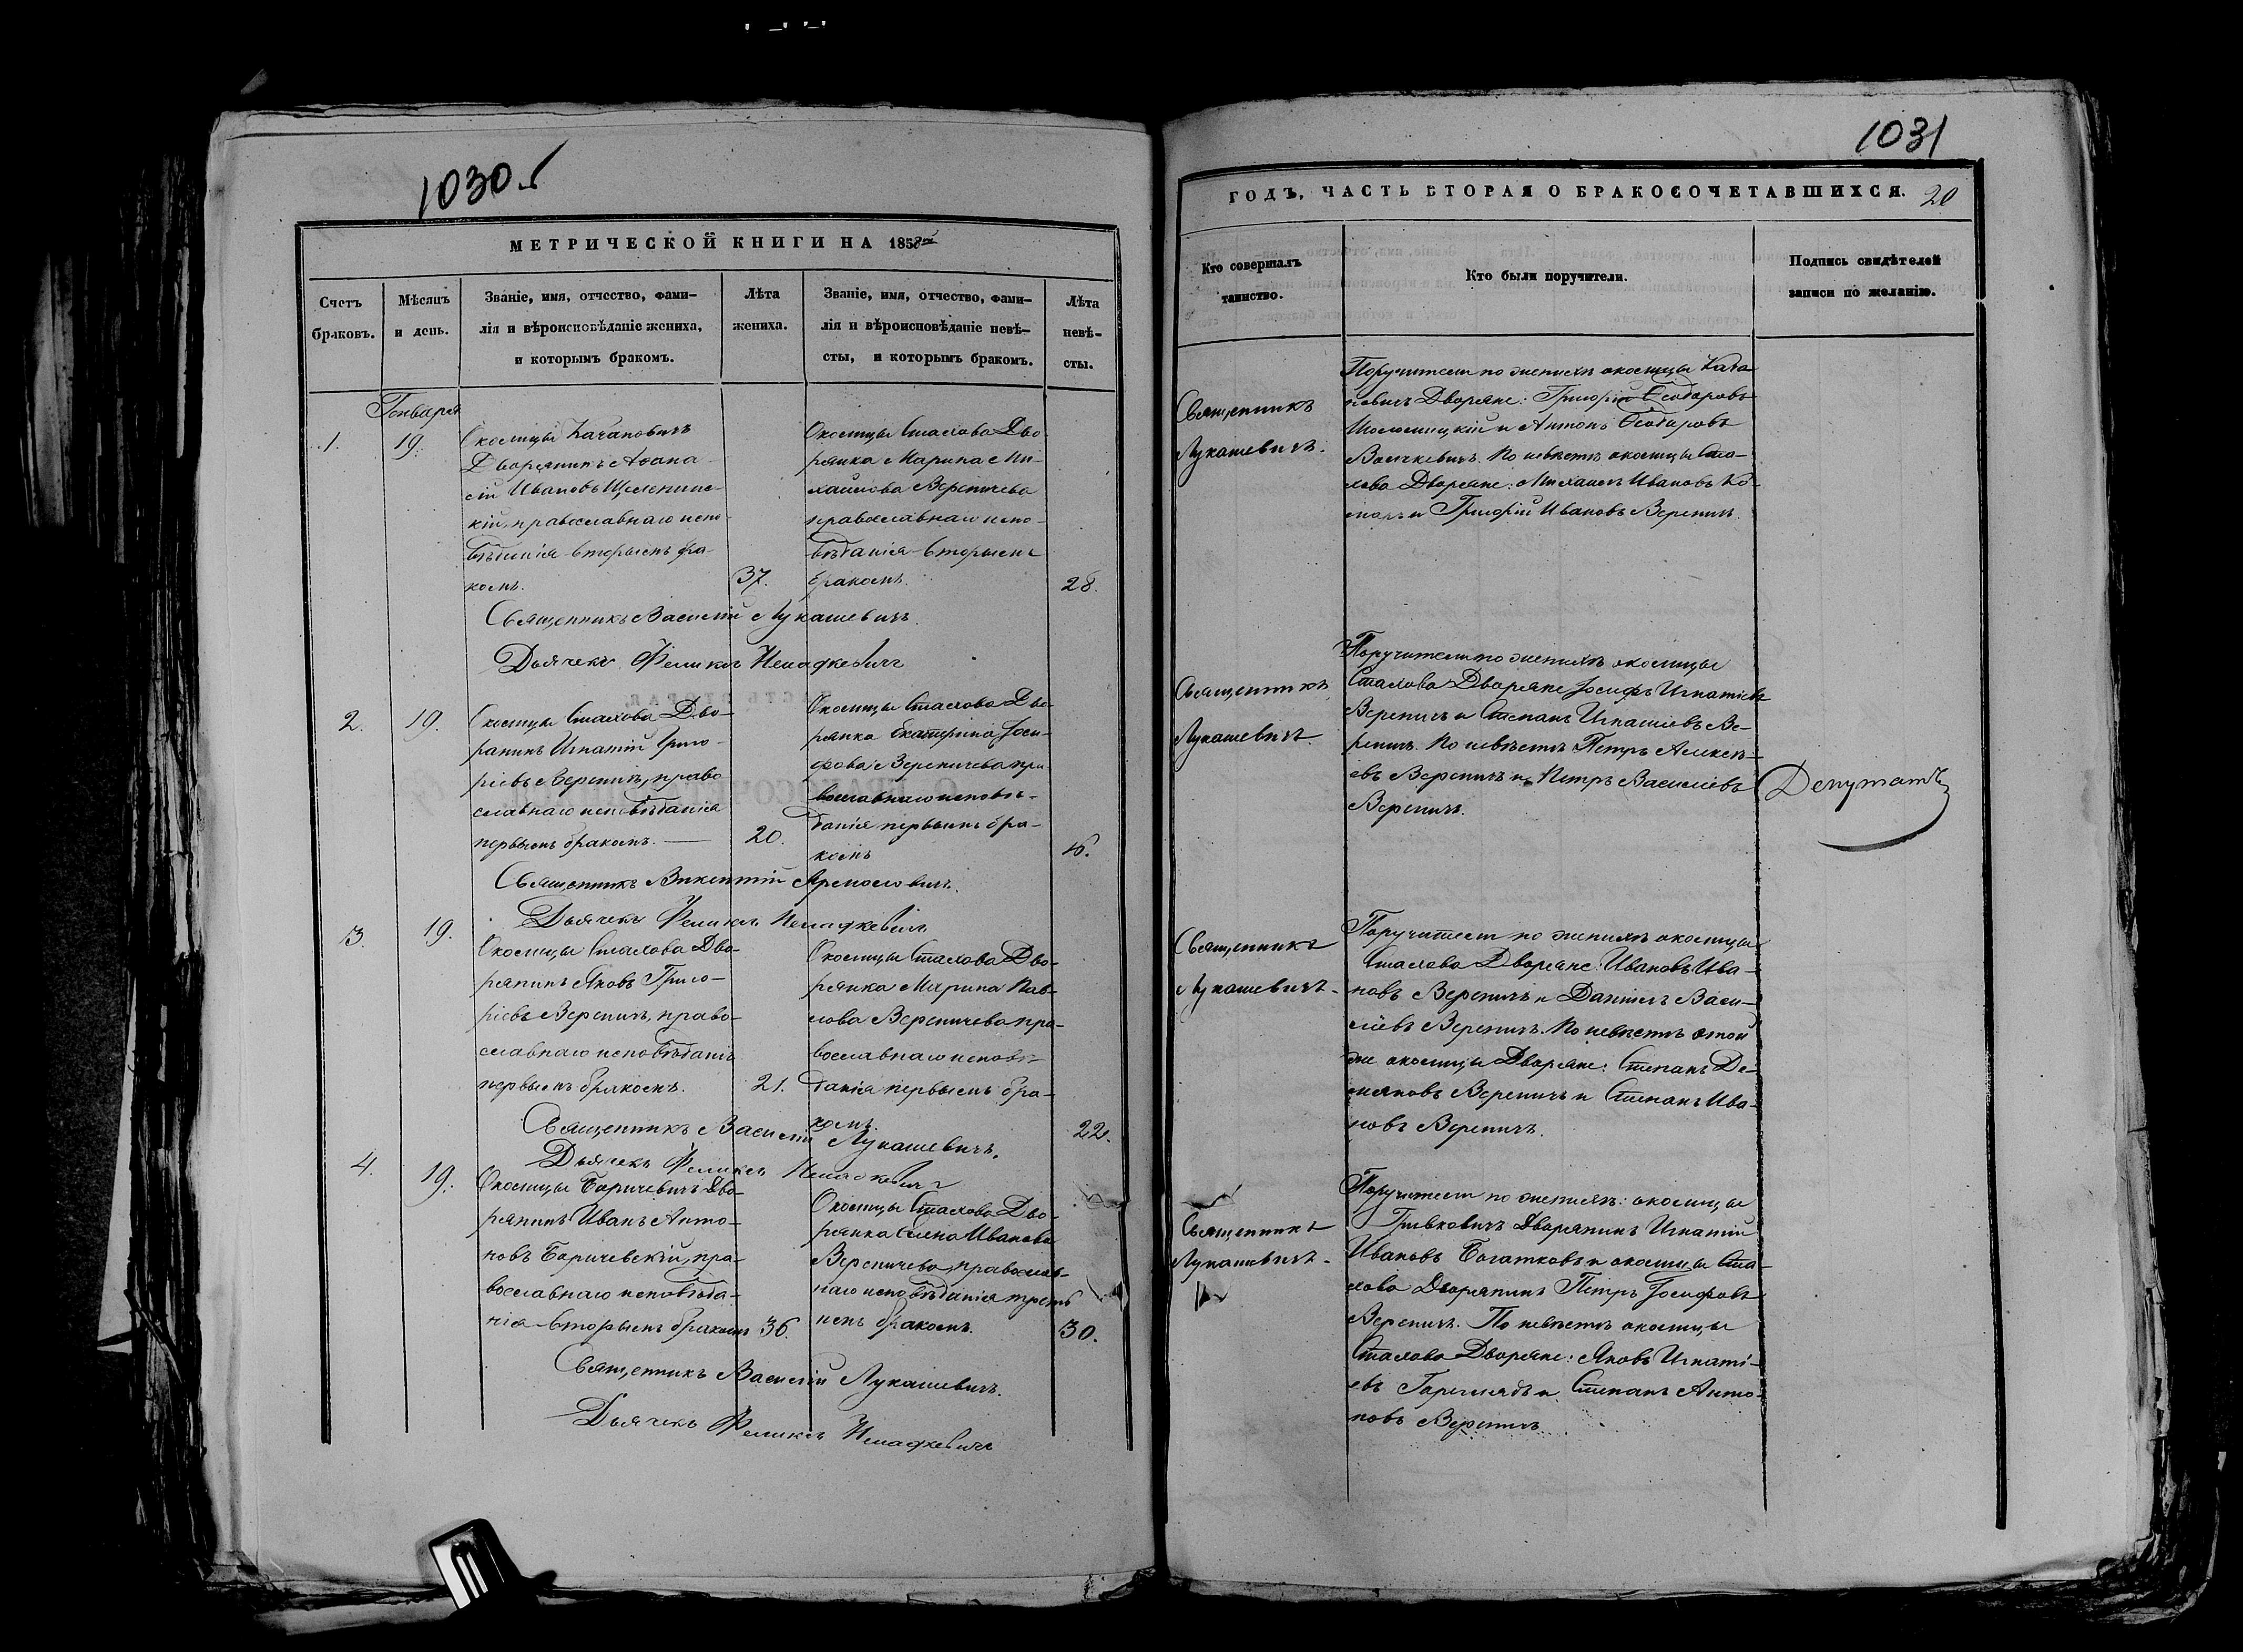 1030
1031
МЕТРИЧЕСКОЙ КНИГИ НА 1858
Счетъ браковъ.
Мѣсяцъ и день.
Званіе, имя, отчество, фами-
лія и вѣроисповѣданіе жениха,
и которымъ бракомъ.
Лѣта
жениха.
Званіе, имя, отчество, фами-
лія и вѣроисповѣданіе невѣ-
сты, и которымъ бракомъ.
Лѣта
невѣ-
сты.
Генваря
1.
19.
Околицы Качановичъ
Дворянинъ Афана-
сій Ивановъ
кій, православнаго испо-
вѣданія вторымъ бра-
комъ.
37.
Околицы Стахова Дво-
рянка Марина Ми-
хайлова Вереничева
православнаго испо-
вѣданія вторымъ
бракомъ.
28.
Священникъ Василій Лукашевичъ.
Дьячекъ Феликсъ
2.
19.
Околицы Стахова Дво-
рянинъ Игнатій Григо-
ріевъ Вереничъ, право
славнаго исповѣданія
первымъ бракомъ.
20.
Околицы Стахова Дво
рянка Екатерина Іоси-
фова Вереничева пра-
вославнаго исповѣ-
данія первымъ бра-
комъ
Священникъ Викентій
Дьячекъ Феликсъ
3.
19.
Околицы Стахова Дво-
рянинъ Яковъ Григо-
ріевъ Вереничъ, право-
славнаго исповѣданія
первымъ бракомъ.
21.
Околицы Стахова Дво-
рянка Марина Пав-
лова Вереничева пра-
вославнаго исповѣ-
данія первымъ бра-
комъ.
22.
Священникъ Василій Лукашевичъ.
Дьячекъ Феликсъ
4.
19.
Околицы Боричевичъ Дво-
рянинъ Иванъ Анто-
новъ Боричевскій, пра-
вославнаго исповѣда-
нія вторымъ бракомъ
36.
Околицы Стахова Дво-
рянка Иванова
Вереничева, православ-
наго исповѣданія треть
имъ бракомъ.
30.
Священникъ Василій Лукашевичъ.
Дьячекъ Феликсъ
ГОДЪ, ЧАСТЬ ВТОРАЯ О БРАКОСОЧЕТАВШИХСЯ.
20
Кто совершалъ
таинство.
Кто были поручители.
Подпись свидѣтелей
записи по желанію.
Священникъ
Лукашевичъ.
Поручители по женихѣ околицы Кача
новичъ Дворяне: Григорій Ѳеодоровъ
и Антонъ Ѳеодоровъ
По невѣстѣ околицы Ста-
хова Дворяне: Михаилъ Ивановъ Ко-
и Григорій Ивановъ Вереничъ.
Священникъ
Лукашевичъ.
Поручители по женихѣ околицы
Стахова Дворяне Іосифъ Игнатіевъ
Вереничъ и Степанъ Игнатіевъ Ве-
реничъ. По невѣстѣ Петръ Алексѣ-
евъ Вереничъ и Петръ Василіевъ
Вереничъ.
Депутатъ
Священникъ
Лукашевичъ.
Поручители по женихѣ околицы
Стахова Дворяне: Ивановъ Ива-
новъ Вереничъ и Даніилъ Васи-
ліевъ Вереничъ. По невѣстѣ этой
же околицы Дворяне: Степанъ Де-
мяновъ Вереничъ и Степанъ Ива-
новъ Вереничъ.
Священникъ
Лукашевичъ.
Поручители по женихѣ: околицы
Дворянинъ Игнатій
Ивановъ и околицы Ста-
хова Дворянинъ Петръ Іосифовъ
Вереничъ. По невѣстѣ околицы
Стахова Дворяне: Яковъ Игнаті-
евъ и Степанъ Анто-
новъ Вереничъ